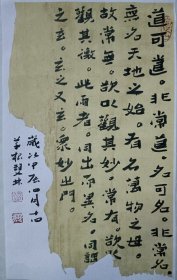 道可道。非常道。名可名。非常名。
無名天地之始。有名萬物之母。
故常無。欲以觀其妙。常有。欲以
觀其徼。此兩者。同出而異名。同謂
之玄。玄之又玄。眾妙之門。
歲次甲辰四月